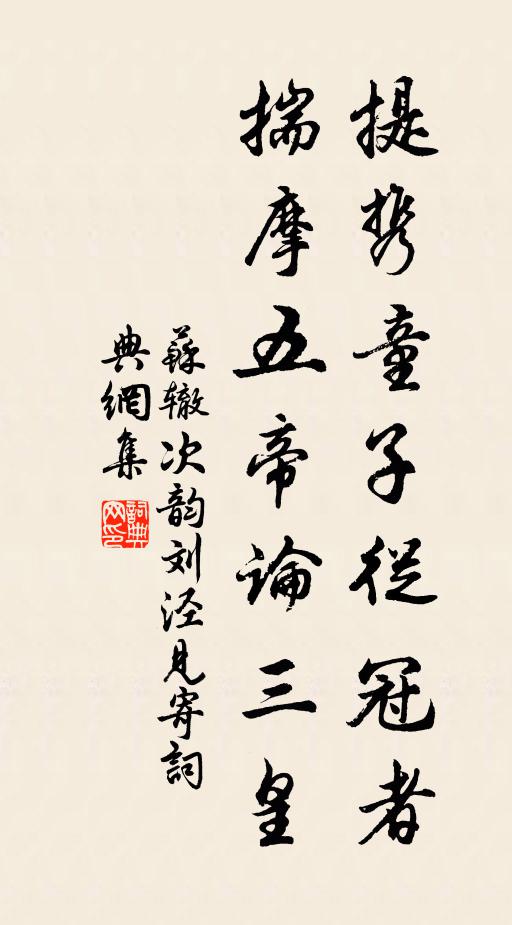 提携童子從冠者
揣摩五帝論三皇
蘇辙次韵刘泾見寄詞
典網集
詞典网印